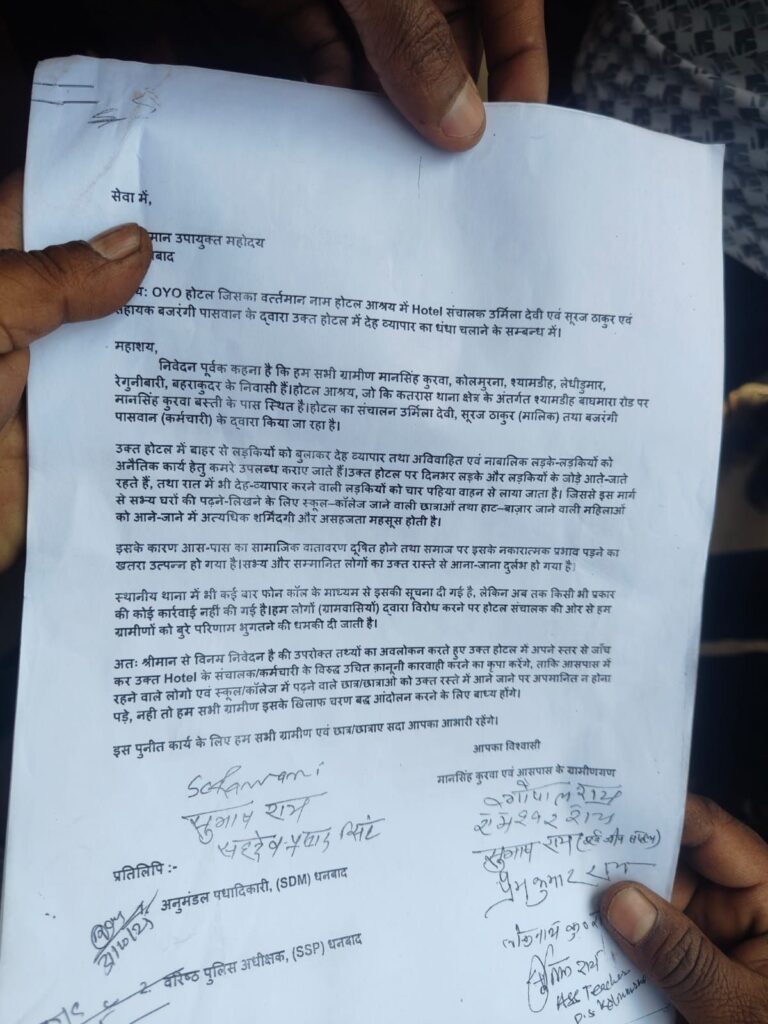 सेवा में,
मान उपायुक्त महोदय
बाद
OYO होटल जिसका वर्त्तमान नाम होटल आश्रय में Hotel संचालक उर्मिला देवी एवं सूरज ठाकुर एवं
सहायक बजरंगी पासवान के द्वारा उक्त होटल में देह व्यापार का धंधा चलाने के सम्बन्ध में।
महाशय,
निवेदन पूर्वक कहना है कि हम सभी ग्रामीण मानसिंह कुरवा, कोलमुरना, श्यामडीह, लेधीडुमार,
रेगुनीबारी, बहराकुदर के निवासी हैं।होटल आश्रय, जो कि कतरास थाना क्षेत्र के अंतर्गत श्यामडीह बाघमारा रोड पर
मानसिंह कुरवा बस्ती के पास स्थित है।होटल का संचालन उर्मिला देवी, सूरज ठाकुर (मालिक) तथा बजरंगी
पासवान (कर्मचारी) के द्वारा किया जा रहा है।
उक्त होटल में बाहर से लड़कियों को बुलाकर देह व्यापार तथा अविवाहित एवं नाबालिक लड़के-लड़कियों को
अनैतिक कार्य हेतु कमरे उपलब्ध कराए जाते हैं।उक्त होटल पर दिनभर लड़के और लड़कियों के जोड़े आते-जाते
रहते हैं, तथा रात में भी देह-व्यापार करने वाली लड़कियों को चार पहिया वाहन से लाया जाता है। जिससे इस मार्ग
से सभ्य घरों की पढ़ने-लिखने के लिए स्कूल–कॉलेज जाने वाली छात्राओं तथा हाट–बाज़ार जाने वाली महिलाओं
को आने-जाने में अत्यधिक शर्मिंदगी और असहजता महसूस होती है।
इसके कारण आस-पास का सामाजिक वातावरण दूषित होने तथा समाज पर इसके नकारात्मक प्रभाव पड़ने का
खतरा उत्पन्न हो गया है।सभ्य और सम्मानित लोगों का उक्त रास्ते से आना-जाना दुर्लभ हो गया है।
स्थानीय थाना में भी कई बार फोन कॉल के माध्यम से इसकी सूचना दी गई है, लेकिन अब तक किसी भी प्रकार
की कोई कार्रवाई नहीं की गई है।हम लोगों (ग्रामवासियों) द्वारा विरोध करने पर होटल संचालक की ओर से हम
ग्रामीणों को बुरे परिणाम भुगतने की धमकी दी जाती है।
अतः श्रीमान से विनम्र निवेदन है की उपरोक्त तथ्यों का अवलोकन करते हुए उक्त होटल में अपने स्तर से जाँच
कर उक्त Hotel के संचालक/कर्मचारी के विरुद्ध उचित क़ानूनी कारवाही करने का कृपा करेंगे, ताकि आसपास में
रहने वाले लोगो एवं स्कूल/कॉलेज में पढ़ने वाले छात्र/छात्राओ को उक्त रस्ते में आने जाने पर अपमानित न होना
पड़े, नही तो हम सभी ग्रामीण इसके खिलाफ चरण बद्ध आंदोलन करने के लिए बाध्य होंगे।
इस पुनीत कार्य के लिए हम सभी ग्रामीण एवं छात्र/छात्राए सदा आपका आभारी रहेंगे।
आपका विश्वासी
मानसिंह कुरवा एवं आसपास के ग्रामीणगण
गोपाल राय
सुभाष राय
रामेश्वर राय
सहदेव प्रसाद सिंह
सुभाष राय
प्रेम कुमार राय
प्रतिलिपि :-
अनुमंडल पधादिकारी, (SDM) धनबाद
2. वरिष्ठ पुलिस अधीक्षक, (SSP) धनबाद
Ass Teacher